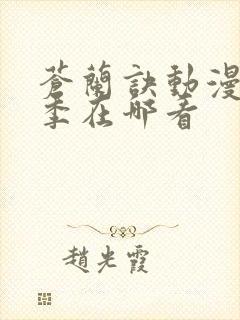 蒼蘭訣動漫
季在哪看
趙光霞